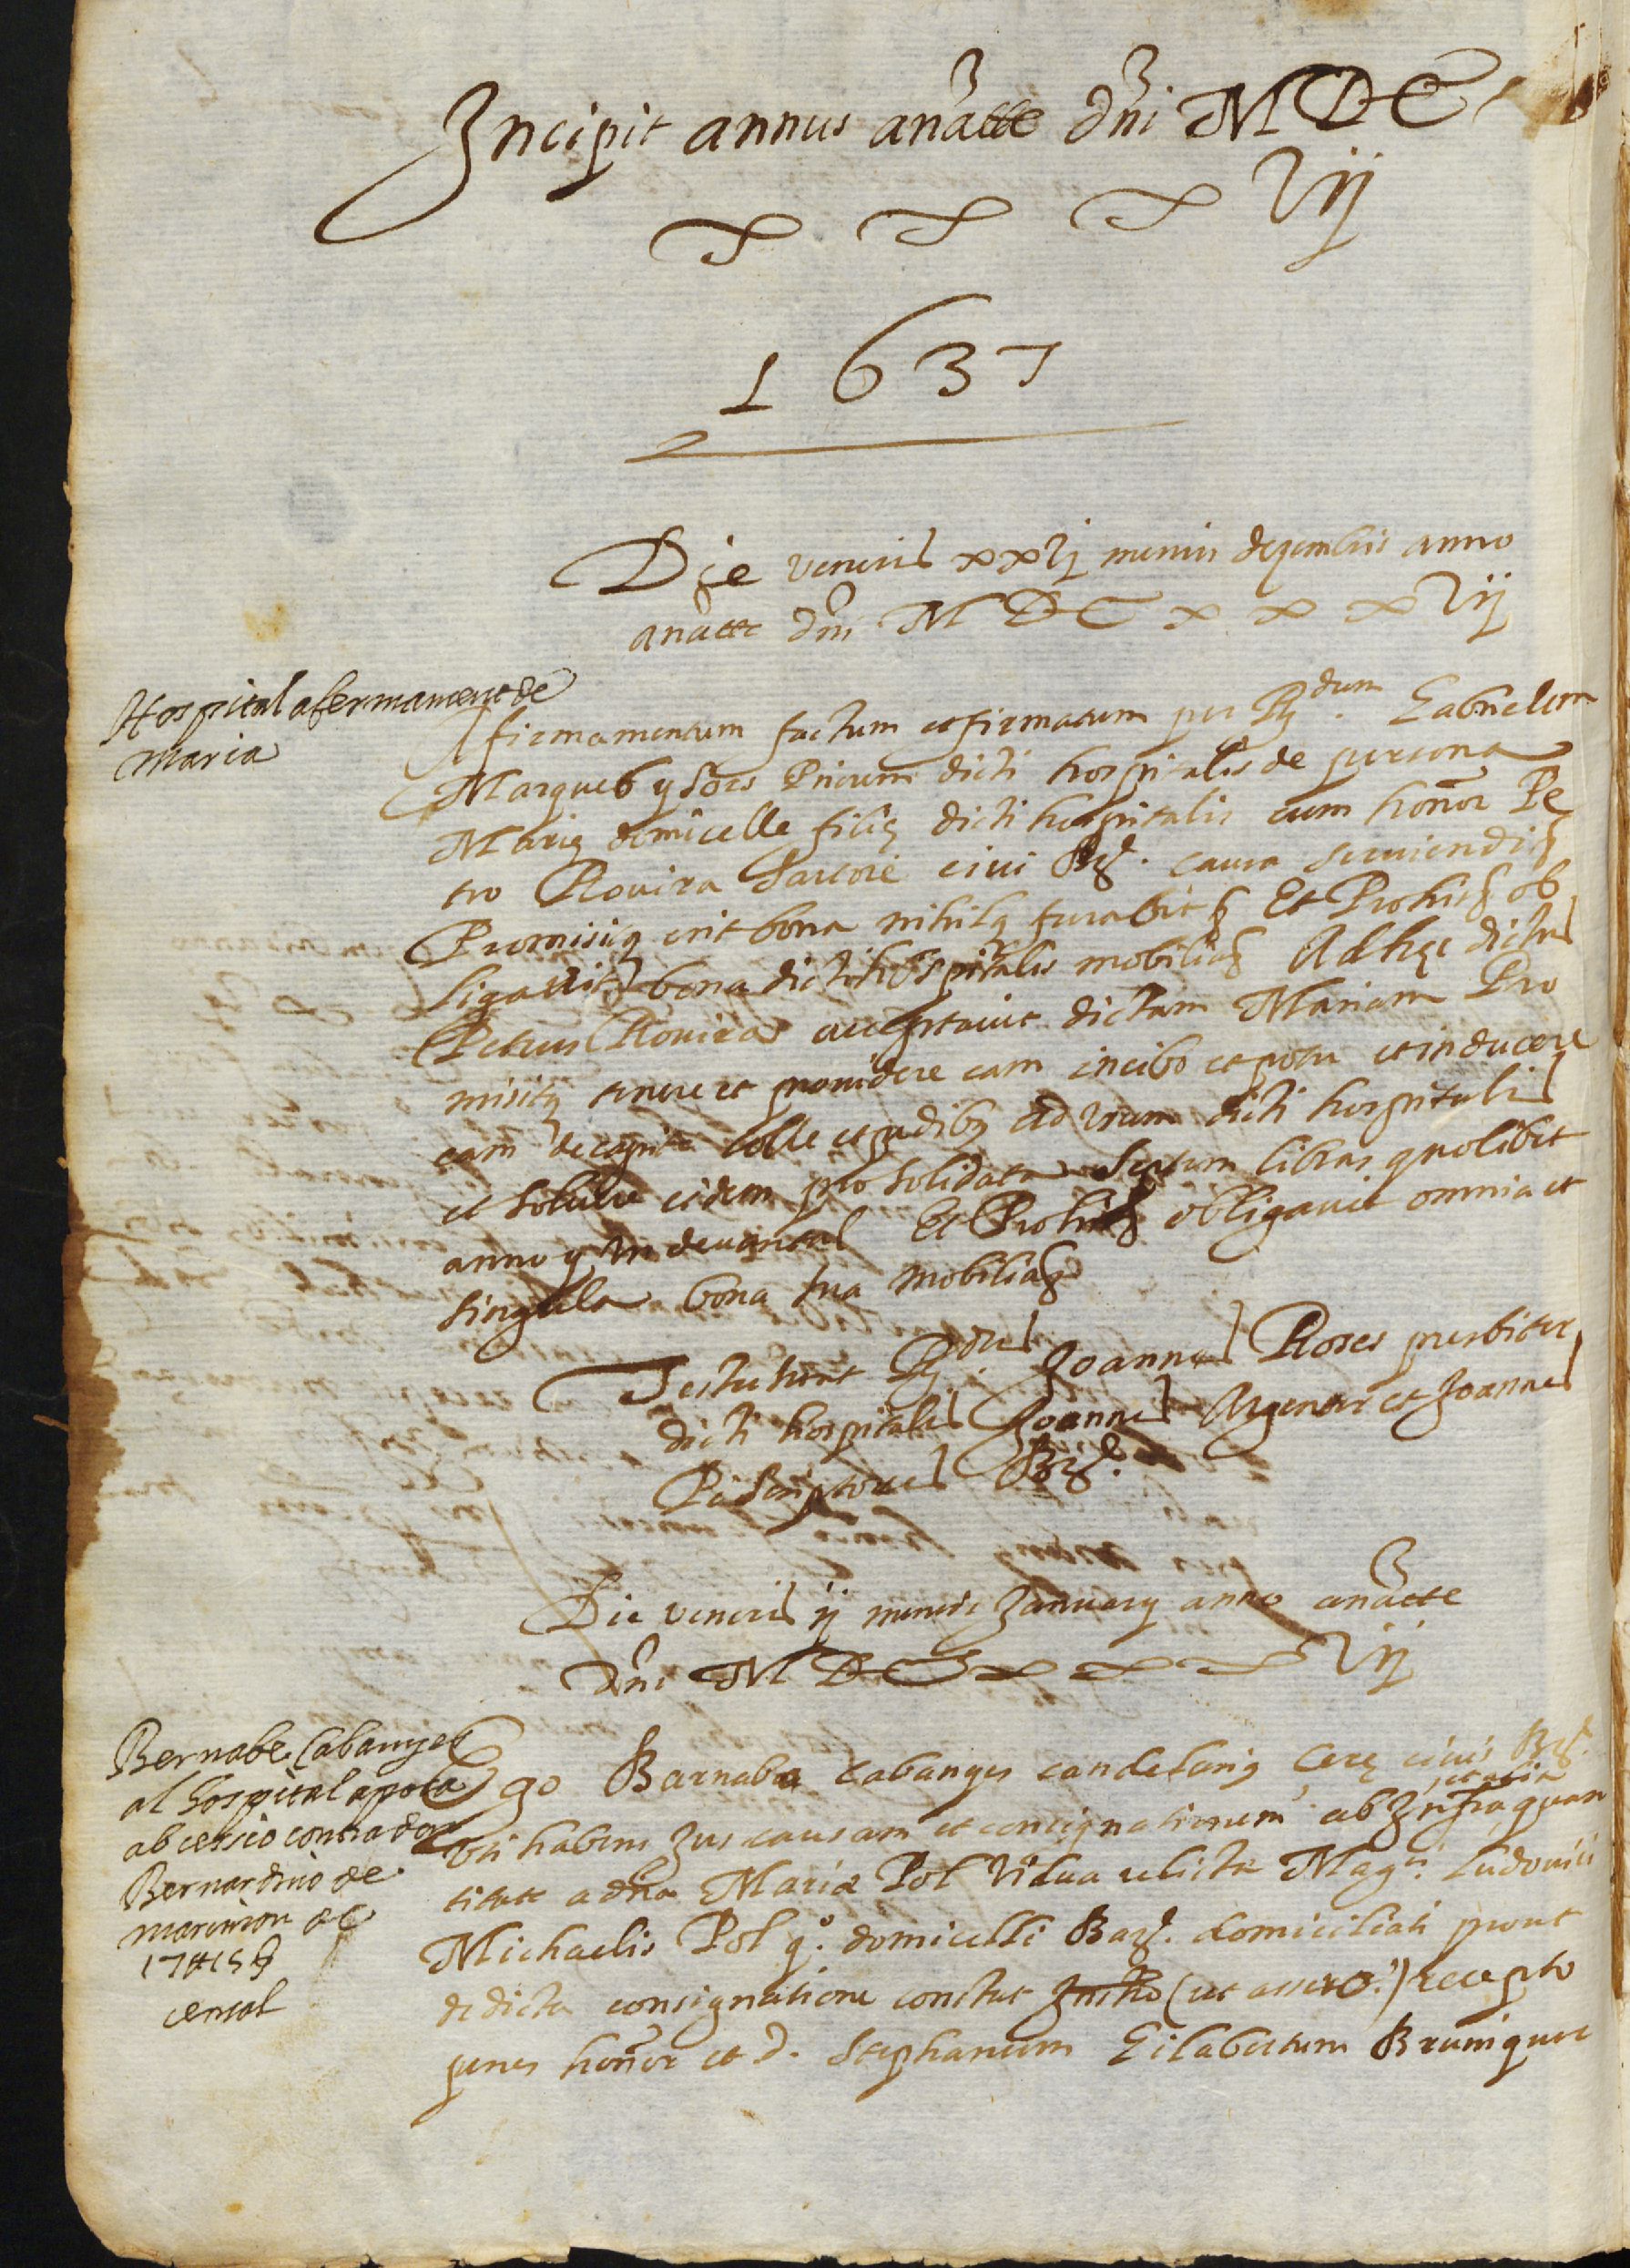 Incipit annus a nātte dñi MDC
xxxvij
1637
Die veneris xxvj mensis dezembris anno
a nātte dñi MDCxxxvij
Hospital afermament de
Maria
Afirmamentum factum et firmatum per Rdum. Gabrielem
Marques y sors Priorem dicti hospitalis de persona
Marię domicelle filię dicti hospitalis cum honor Pe
tro Rovira Sartore civi Bar. causa serviendi
Promisitq erit bona nihilq furabit Et Prohis ob
ligavit bona dicti hospitalis mobilia Ad hęc dictus
Petrus Rovira acceptavit dictam Mariam Pro
misitq tenere et providere eam in cibo et potu et inducere
eam de capite colle et pedibq ad usum dicti hospitalis
et solvere eidem pro solidata septem libras quolibet
anno y un devantal Et Prohis obligavit omnia et
singula bona sua mobilia
Testes sunt Rdus. Joannes Roses presbiter
dicti hospitalis Joannes Argenter et Joannes
Pi scriptores Bar.
Die veneris ij mensis January anno a nātte
Dñi MDCxxxvij
Bernabe Cabanyes
al hospital apoca
ab cessio contra don
Bernardino de
marimon de
17 # 15 ß
censal
Ego Barnabas Cabanyes candelariq cerę civis Bar.
Uti habens Jus causam et consignationem ab Infra et alia quan
titate a dña Maria Pol Vidua relicta Mag.ci Ludovici
Michaelis Pol q.º domicelli Bar. domiciliati prout
de dicta consignatione constat Instro (ut assero) recepto
penes honor et d. Stephanum Gilabertum Bruniquer